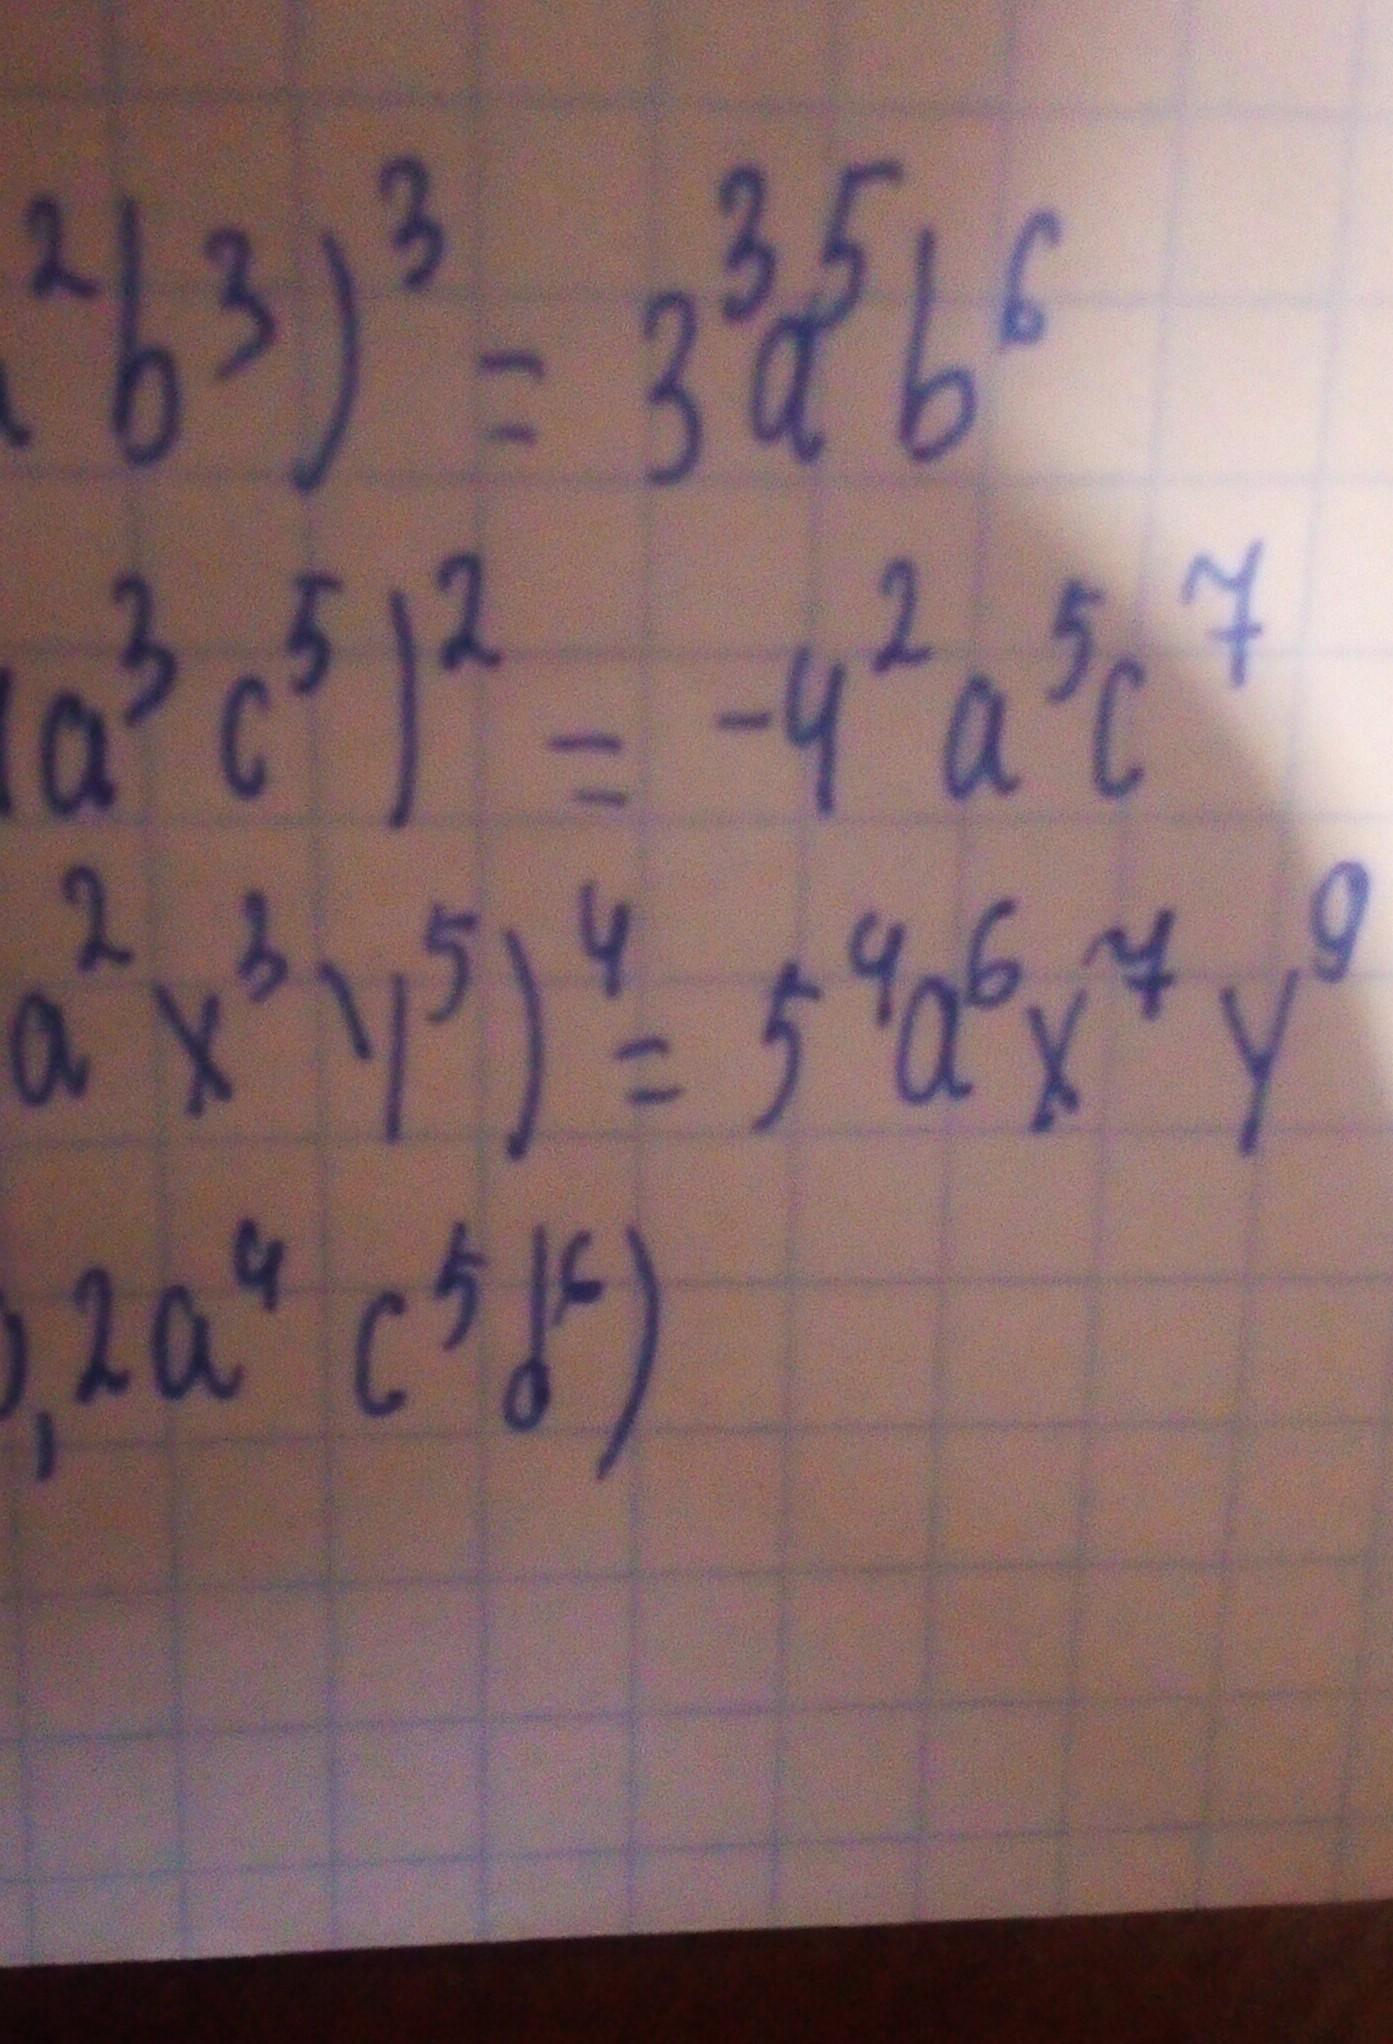 ²b³)³ = 3³a⁵b⁶
a³c⁵)² = -4²a⁵c⁷
a²x³y⁵)⁴ = 5⁴a⁶x⁷y⁹
,2a⁴c⁵d⁶)